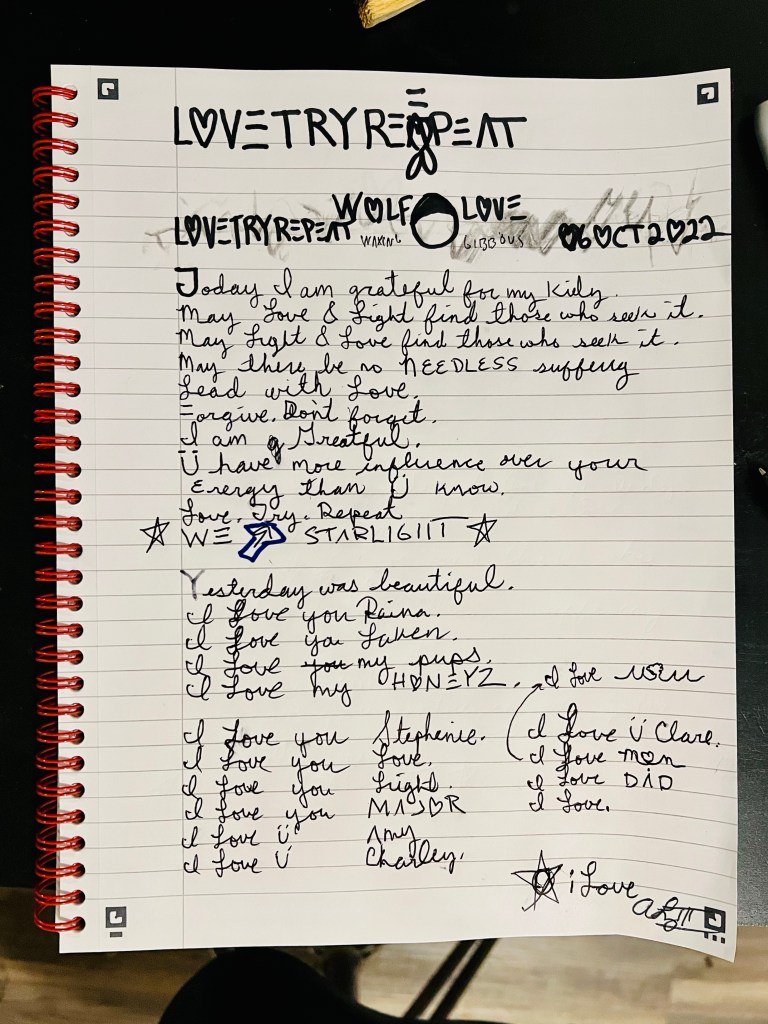 LOVETRYREPEAT
WOLF LOVE
LOVETRYREPEAT WAXING GIBBOUS 06OCT2022
Today I am grateful for my Kids.
May Love & Light find those who seek it.
May Light & Love find those who seek it.
May there be no NEEDLESS suffering
Lead with Love.
Forgive. Don't forget.
I am Greatful.
Ü have more influence over your
Energy than Ü know.
Love. Try. Repeat
WE STARLIGHT
Yesterday was beautiful.
I Love you Raina.
I Love you
I Love you my pups.
I Love my HONEYZ. I Love
I Love you Stephenie. I Love Ü Clare.
I Love you Love. I Love mom
I Love you Light. I Love DAD
I Love you MAJOR I Love.
I Love Ü Amy
I Love Ü Charley.
i Love